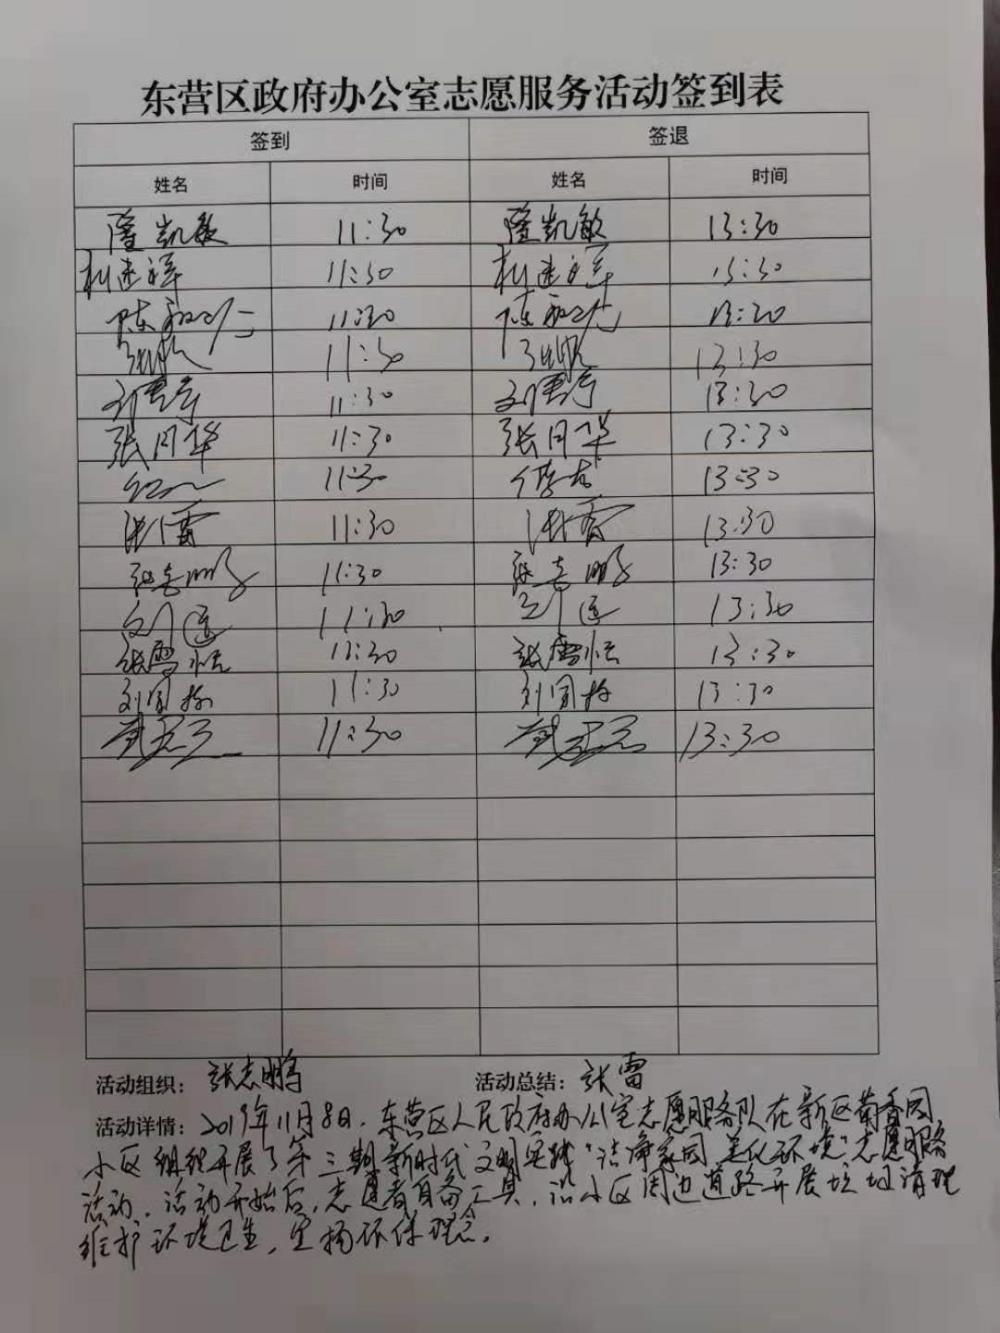 东营区政府办公室志愿服务活动签到表
签到 签退
姓名 时间 姓名 时间
隆凯敏 11:30 隆凯敏 13:30
11:30 13:30
陈 11:30 陈 13:30
11:30 13:30
刘 11:30 刘 13:30
张月华 11:30 张月华 13:30
11:30 13:30
张雷 11:30 张雷 13:30
张志鹏 11:30 张志鹏 13:30
刘 11:30 刘 13:30
张雪 11:30 张雪 13:30
刘国 11:30 刘国 13:30
11:30 13:30
活动组织： 张志鹏 活动总结： 张雷
活动详情： 2019年11月8日，东营区人民政府办公室志愿服务队在新区菊香园
小区组织开展了第三期新时代文明实践“洁净家园 美化环境”志愿服务
活动，活动开始后，志愿者自备工具，沿小区周边道路开展垃圾清理
维护环境卫生，宣扬环保理念。